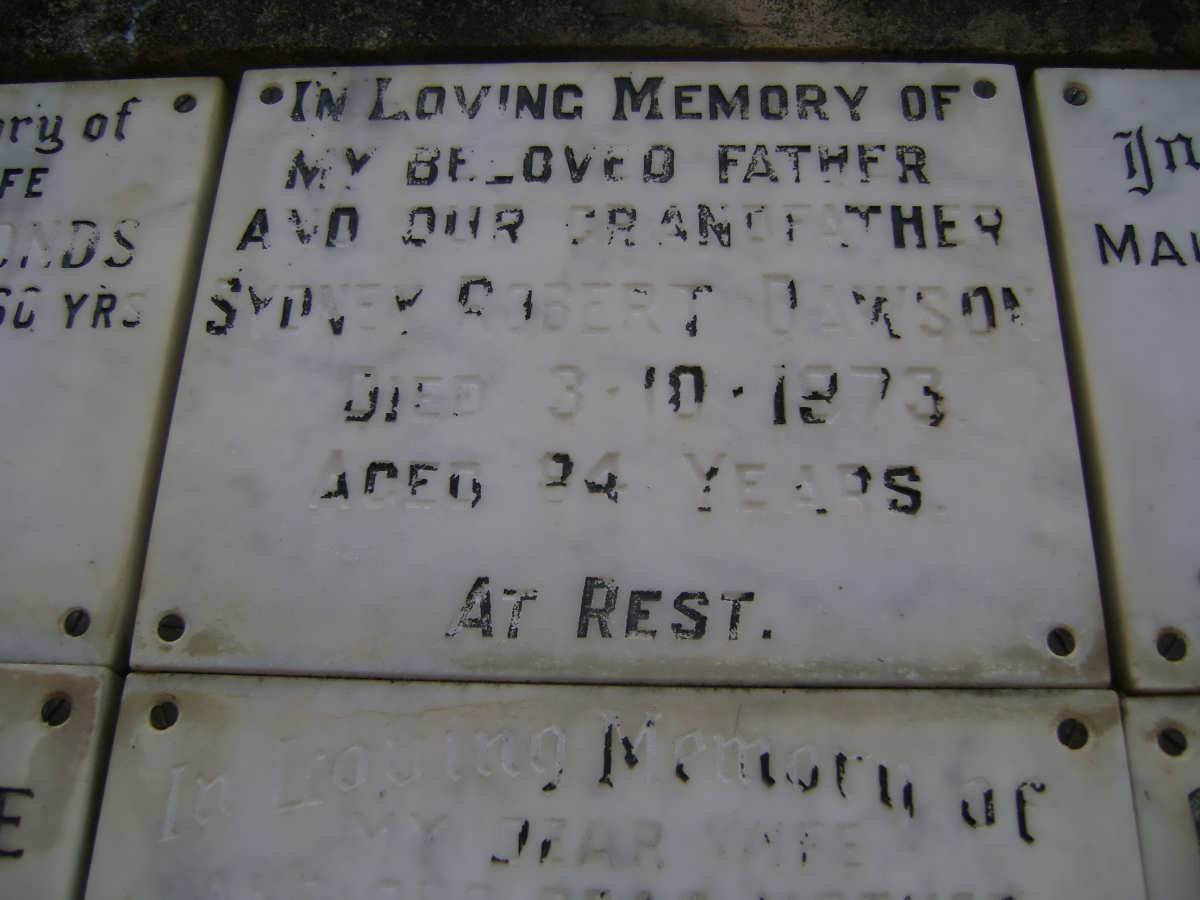 ory of
FE
ONDS
60 YRS
IN LOVING MEMORY OF
MY BELOVED FATHER
AND OUR GRANDFATHER
SYDNEY ROBERT DAWSON
DIED 3·10·1973
AGED 84 YEARS.
AT REST.
In
MAU
E
In Loving Memory of
MY DEAR WIFE
AND OUR DEAR MOTHER